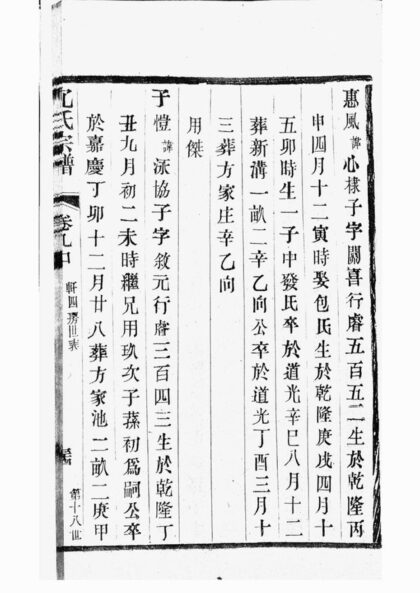 惠風諱心棣子字闓喜行睿五百五二生於乾隆丙
申四月十二寅時娶包氏生於乾隆庚戌四月十
五卯時生一子中發氏卒於道光辛巳八月十二
葬新溝一畝二辛乙向公卒於道光丁酉三月十
三葬方家庄辛乙向
用傑
于愷諱泳協子字敘元行睿三百四三生於乾隆丁
丑九月初二未時繼兄用玖次子蓀初為嗣公卒
於嘉慶丁卯十二月廿八葬方家池二畝二庚甲
氏宗譜
卷九中
軒四房世表
第十八世